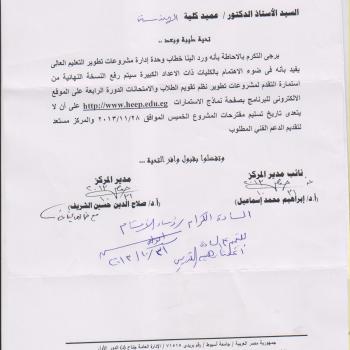 السيد الأستاذ الدكتور / عميد كلية الهندسة
تحية طيبة وبعد ..
يرجى التكرم بالاحاطة بأنه ورد الينا خطاب وحدة إدارة مشروعات تطوير التعليم العالى
يفيد بأنه فى ضوء الاهتمام بالكليات ذات الاعداد الكبيرة سيتم رفع النسخة النهائية من
استمارة التقدم لمشروعات تطوير نظم تقويم الطلاب والامتحانات الدورة الرابعة على الموقع
الالكترونى للبرنامج بصفحة نماذج الاستمارات http://www.heep.edu.eg على أن لا
يتعدى تاريخ تسليم مقترحات المشروع الخميس الموافق ٢٠١٣/١١/٢٨ والمركز مستعد
لتقديم الدعم الفني المطلوب
وتفضلوا بقبول وافر التحية ...
نائب مدير المركز
مدير المركز
(أ.د/ إبراهيم محمد إسماعيل)
(أ.د/ صلاح الدين حسين الشريف)
السادة الكرام رؤساء الأقسام
جمهورية مصر العربية / جامعة أسيوط / رقم بريدى ٧١٥١٥ / الإدارة العامة جناح (د) الدور الأول